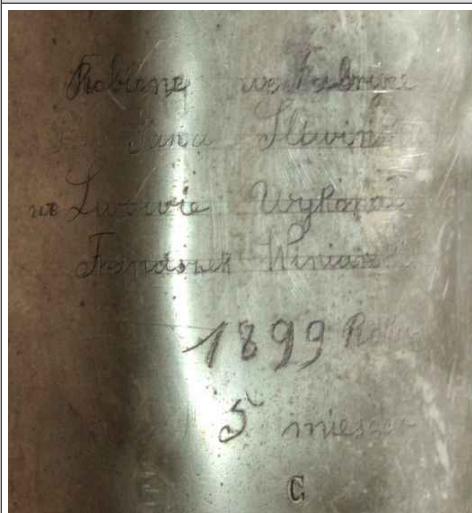 Robione we Fabrice
Jana Śliwiń
we Lwowie Wykonał
Franciszek
1899 Roku
5 miesiąc
C